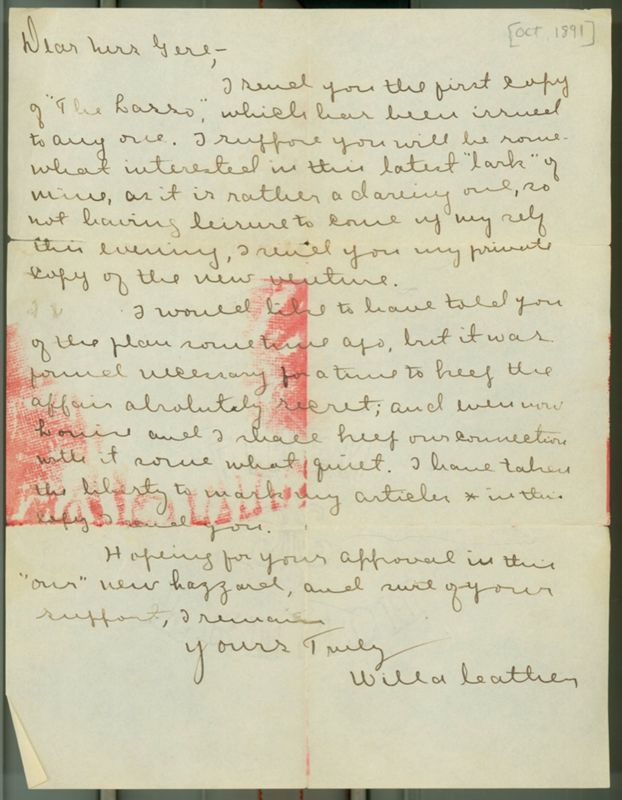 [Oct, 1891]
Dear Mrs Gere,-
I send you the first copy
of "The Lasso", which has been issued
to any one. I suppose you will be some-
what interested in this latest "lark" of
mine, as it is rather a dareing one, so
not having leisure to come up my self
this evening, I send you my private
copy of the new venture.
I would like to have told you
of the plan sometime ago, but it was
found necessary for a time to keep the
affair absolutely secret; and even now
Louise and I shall keep our connection
with it some what quiet. I have taken
the liberty to mark my articles * in this
copy I send you.
Hopeing for your approval in this
"our" new hazzard, and sure of your
support, I remain
Yours Truly
Willa Cather